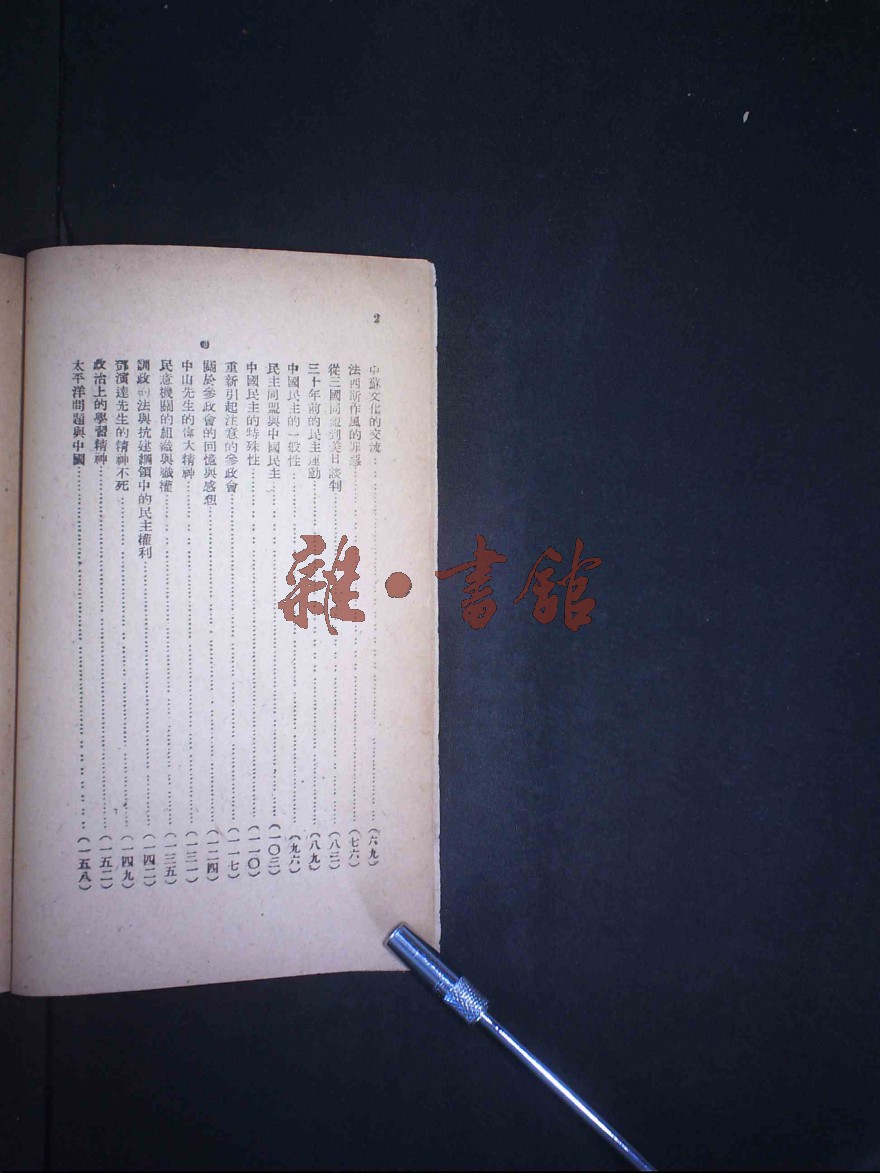 2
中蘇文化的交流(六九)
法西斯作風的罪惡(七六)
從三國同盟到美日談判(八三)
三十年前的民主運動(八九)
中國民主的一般性(九六)
民主同盟與中國民主(一〇三)
中國民主的特殊性(一一〇)
重新引起注意的參政會(一一七)
關於參政會的回憶與感想(一二四)
中山先生的偉大精神(一三一)
民意機關的組織與職權(一三五)
訓政約法與抗建綱領中的民主權利(一四二)
鄧演達先生的精神不死(一四九)
政治上的學習精神(一五二)
太平洋問題與中國(一五八)
雜·書館